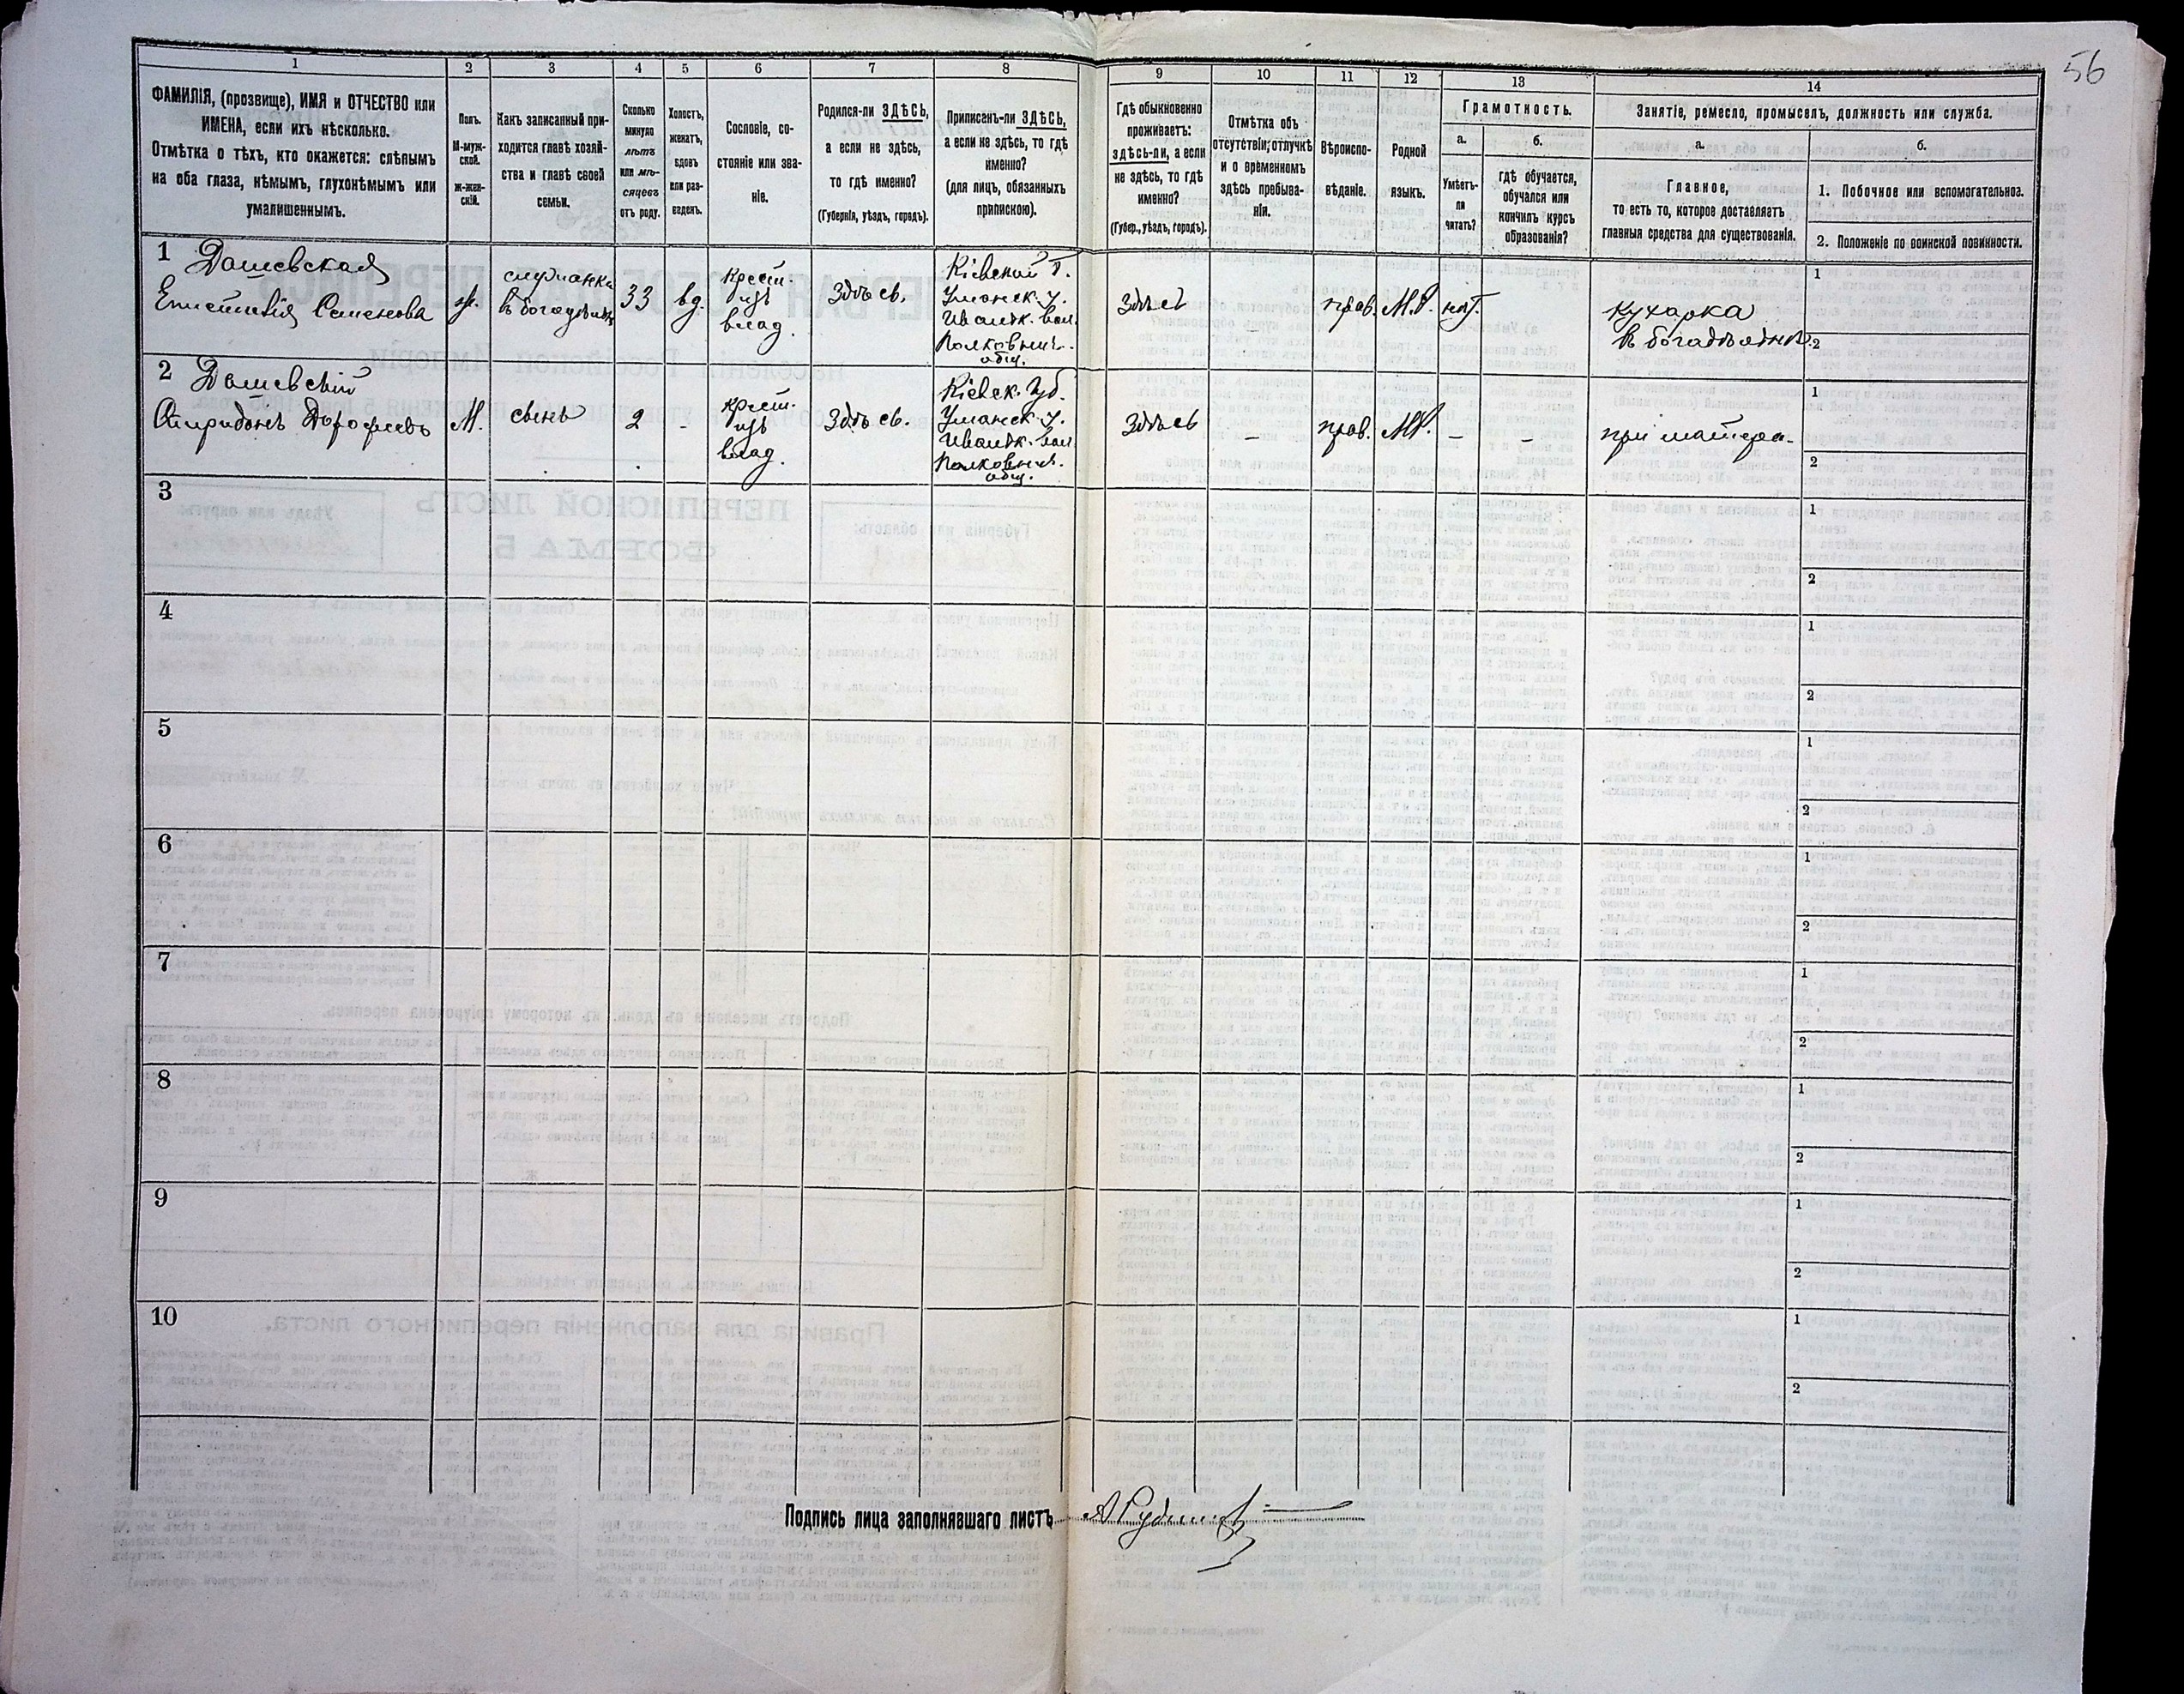 56
1 2 3 4 5 6 7 8 9 10 11 12 13 14
ФАМИЛІЯ, (прозвище), ИМЯ и ОТЧЕСТВО или
ИМЕНА, если ихъ нѣсколько.
Отмѣтка о тѣхъ, кто окажется: слѣпымъ
на оба глаза, нѣмымъ, глухонѣмымъ или
умалишеннымъ.
Полъ.
М-муж-
ской.
Ж-жен-
скій.
Какъ записанный при-
ходится главѣ хозяй-
ства и главѣ своей
семьи.
Сколько
минуло
лѣтъ
или мѣ-
сяцевъ
отъ роду.
Холостъ,
женатъ,
вдовъ
или раз-
веденъ.
Сословіе, со-
стояніе или зва-
ніе.
Родился-ли ЗДѢСЬ,
а если не здѣсь,
то гдѣ именно?
(Губернія, уѣздъ, городъ).
Приписанъ-ли ЗДѢСЬ,
а если не здѣсь, то гдѣ
именно?
(для лицъ, обязанныхъ
припискою).
Гдѣ обыкновенно
проживаетъ:
здѣсь-ли, а если
не здѣсь, то гдѣ
именно?
(Губер., уѣздъ, городъ).
Отмѣтка объ
отсутствіи, отлучкѣ
и о временномъ
здѣсь пребыва-
ніи.
Вѣроиспо-
вѣданіе.
Родной
языкъ.
Грамотность.
а.
Умѣетъ-
ли
читать?
б.
гдѣ обучается,
обучался или
кончилъ курсъ
образованія?
Занятіе, ремесло, промыселъ, должность или служба.
а.
Главное,
то есть то, которое доставляетъ
главныя средства для существованія.
б.
1. Побочное или вспомогательное.
2. Положеніе по воинской повинности.
1 Дашевская
Семенова
ж.
въ богадѣльнѣ
33
вд.
крест.
изъ
влад.
Здѣсь.
Кіевской Г.
Уманск. у.
Иваньк. вол.
Полковнич.
общ.
Здѣсь
прав.
М.Р.
нѣт.
кухарка
1
2
2 Дашевскій
Спиридонъ Дорофеевъ
М.
сынъ
2
-
крест.
изъ
влад.
Здѣсь.
Кіевск. Губ.
Уманск. у.
Иваньк. вол
Полковнич.
общ.
Здѣсь
-
прав.
М.Р.
-
-
при матери.
1
2
3
1
2
4
1
2
5
1
2
6
1
2
7
1
2
8
1
2
9
1
2
10
1
2
Подпись лица заполнявшаго листъ